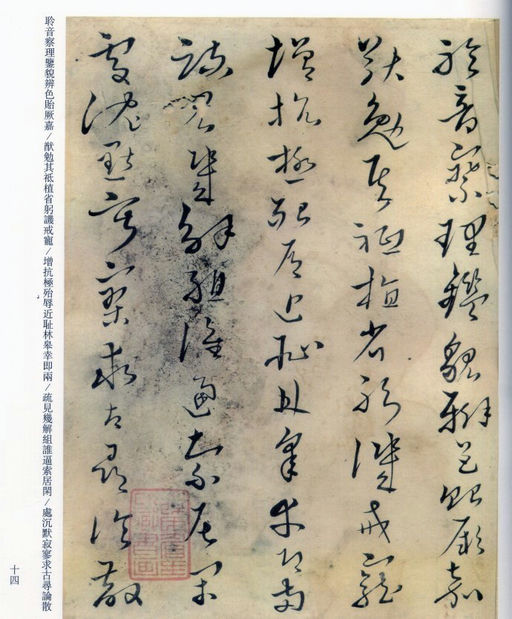 聆音察理鑒貌辨色貽厥嘉
猷勉其祗植省躬譏戒寵
增抗極殆辱近恥林皋幸即兩
疏見幾解組誰逼索居閑
處沉默寂寥求古尋論散
聆音察理鑒貌辨色貽厥嘉/猷勉其祗植省躬譏戒寵/增抗極殆辱近耻林皋幸即兩/疏見幾解組誰逼索居閑/處沉默寂寥求古尋論散
十四